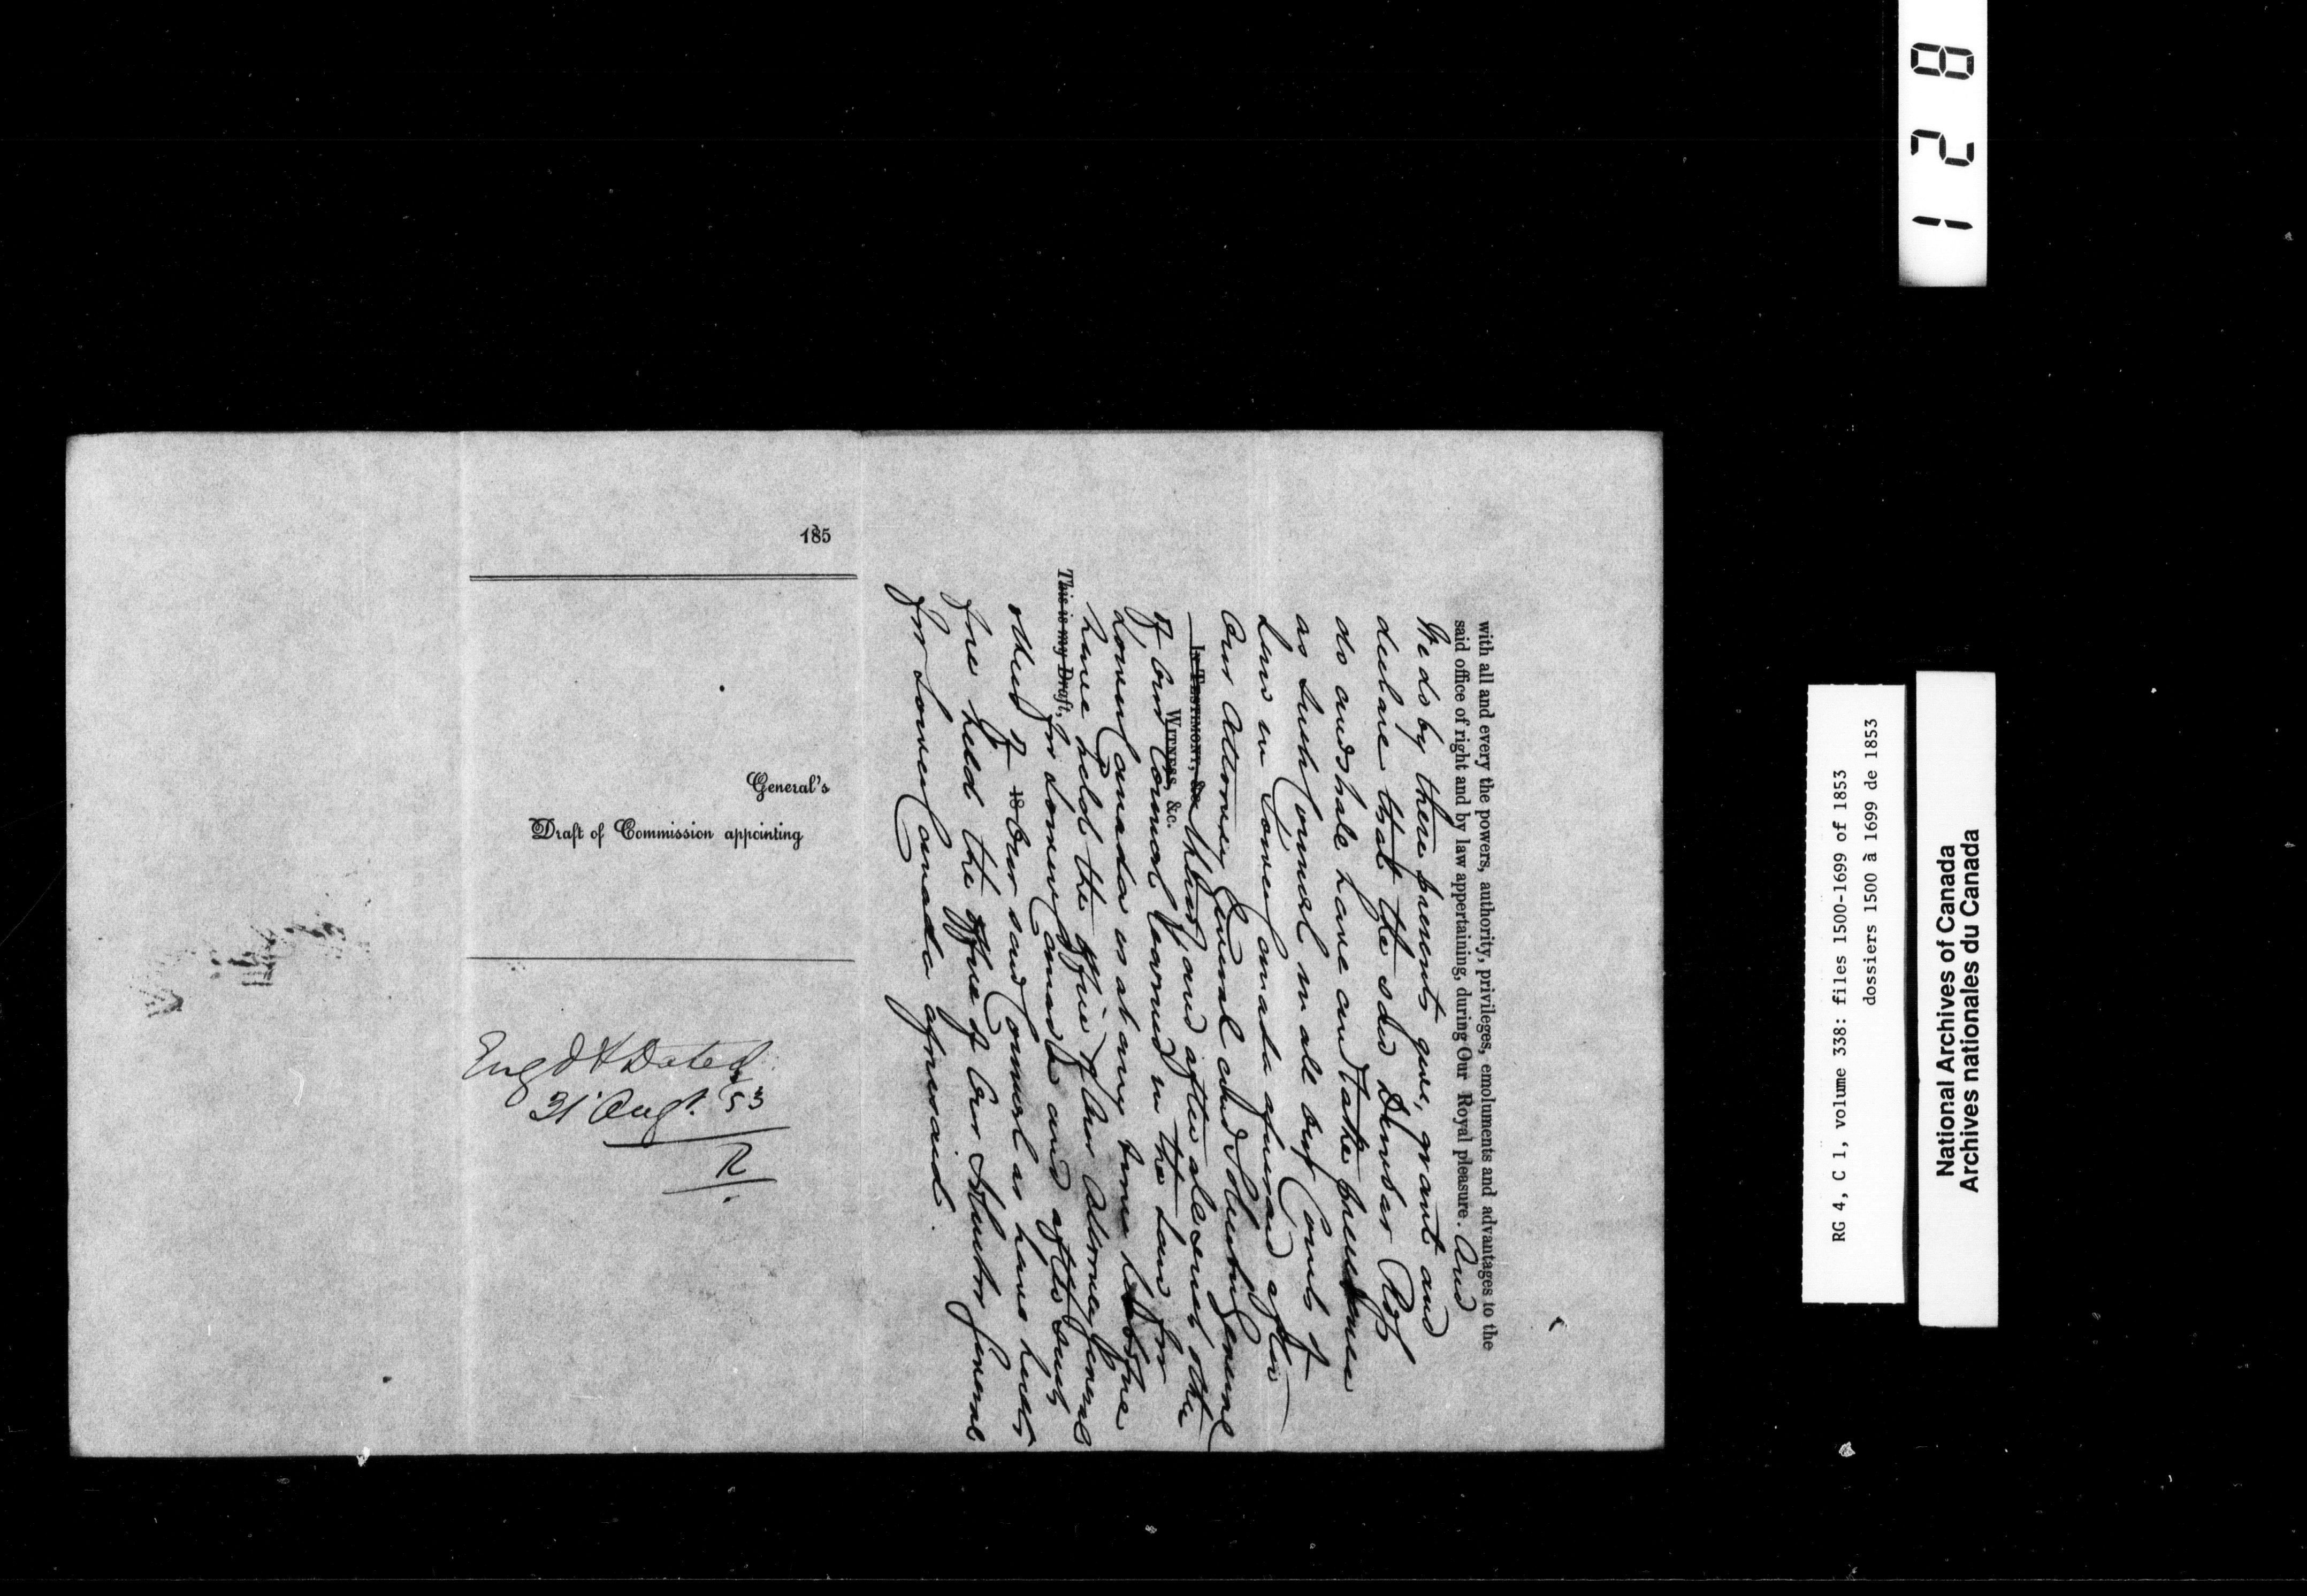 with all and every the powers, authority, privileges, emoluments and advantages to the
said office of right and by law appertaining, during Our Royal pleasure. And
We do by these presents give, grant and
declare that the said Dunbar Ross
do and shall have and take precedence
as such Counsel in all our Courts of
Law in Lower Canada aforesaid after
Our Attorney General and Solicitor General
In Testimony, &c.
thereof and after all such other
Witness, &c.
of Our Counsel learned in the Law for
Lower Canada as at any time heretofore
have held the office of Our Attorney General
This is my Draft,
for Lower Canada and after such
others of Our said Counsel as have hereto
18
fore held the office of Our Solicitor General
for Lower Canada aforesaid.
185
General's
Draft of Commission appointing
Eng'd & Dated
31 Augt. '53
R
1 2 8
RG 4, C 1, volume 338: files 1500-1699 of 1853
dossiers 1500 à 1699 de 1853
National Archives of Canada
Archives nationales du Canada